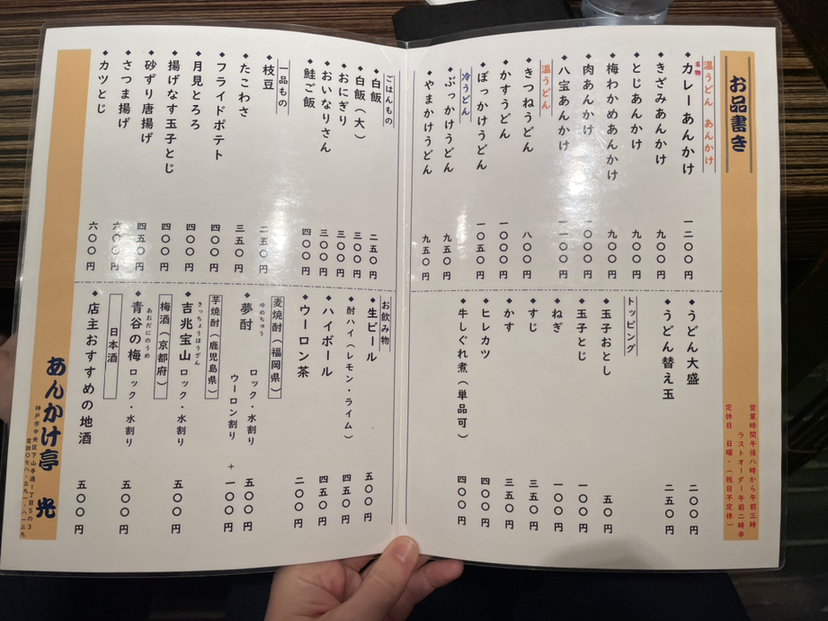 お品書き
温うどん あんかけ
名物
◆カレーあんかけ 一二〇〇円
◆きざみあんかけ 九〇〇円
◆とじあんかけ 九〇〇円
◆梅わかめあんかけ 九〇〇円
◆肉あんかけ 一〇〇〇円
◆八宝あんかけ 一一〇〇円
温うどん
◆きつねうどん 八〇〇円
◆かすうどん 一〇〇〇円
◆ぼっかけうどん 一〇五〇円
冷うどん
◆ぶっかけうどん 九五〇円
◆やまかけうどん 九五〇円
営業時間午後八時から午前三時
ラストオーダー午前二時半
定休日 日曜・(祝日不定休)
◆うどん大盛 二〇〇円
◆うどん替え玉 二五〇円
トッピング
◆玉子おとし 五〇円
◆玉子とじ 一〇〇円
◆ねぎ 一〇〇円
◆すじ 三五〇円
◆かす 三五〇円
◆ヒレカツ 四〇〇円
◆牛しぐれ煮(単品可) 四〇〇円
ごはんもの
◆白飯 二五〇円
◆白飯(大) 三〇〇円
◆おにぎり 三〇〇円
◆おいなりさん 三〇〇円
◆鮭ご飯 四〇〇円
一品もの
◆枝豆 二五〇円
◆たこわさ 三五〇円
◆フライドポテト 四〇〇円
◆月見とろろ 四〇〇円
◆揚げなす玉子とじ 四〇〇円
◆砂ずり唐揚げ 四五〇円
◆さつま揚げ 六〇〇円
◆カツとじ 六〇〇円
お飲み物
◆生ビール 五〇〇円
◆酎ハイ(レモン・ライム) 四五〇円
◆ハイボール 四五〇円
◆ウーロン茶 二〇〇円
麦焼酎(福岡県)
ゆめちゅう
◆夢酎 ロック・水割り 五〇〇円
ウーロン割り +一〇〇円
芋焼酎(鹿児島県)
きっちょうほうざん
◆吉兆宝山 ロック・水割り 五〇〇円
梅酒(京都府)
あおだにのうめ
◆青谷の梅 ロック・水割り 五〇〇円
日本酒
◆店主おすすめの地酒 五〇〇円
あんかけ亭 光
神戸市中央区下山手通1丁目5の3
電話〇七八・三九一・八一三九